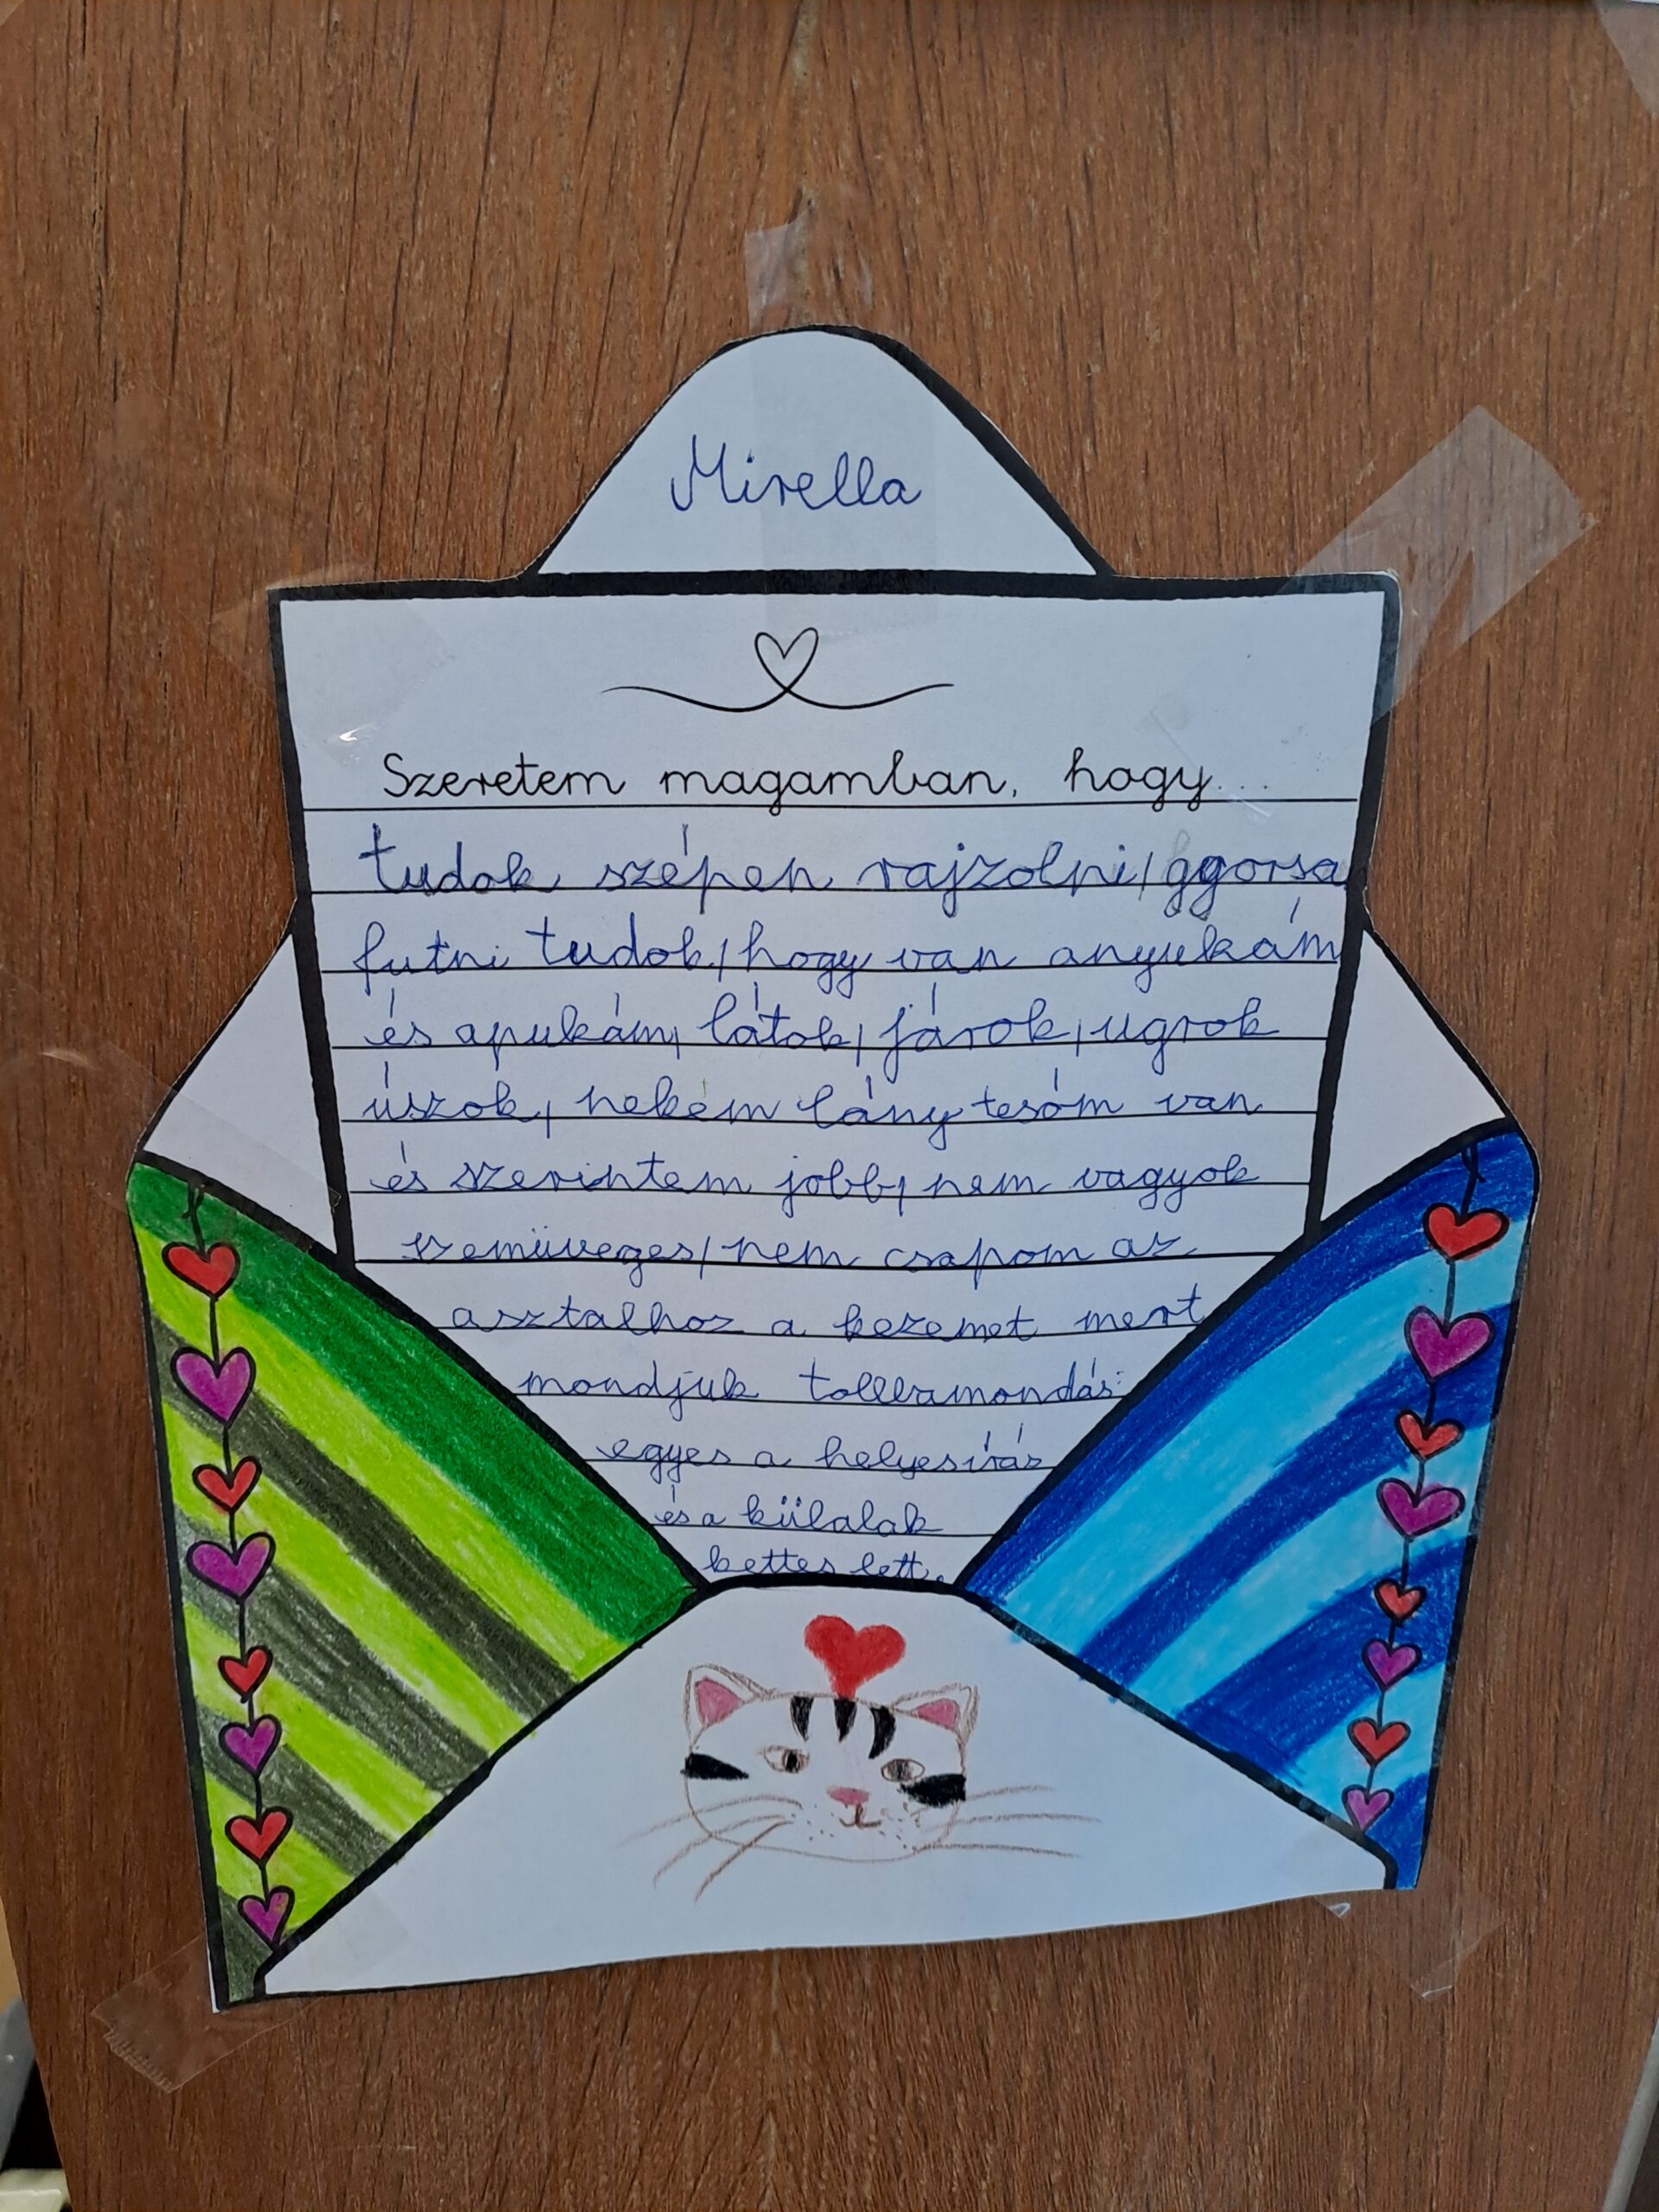 Mirella
Szeretem magamban, hogy...
tudok szépen rajzolni, ggorsa
futni tudok, hogy van anyukám
és apukám, látok, járok, ugrok
úszok, nekem lány tesóm van
és szerintem jobb, nem vagyok
szemüveges, nem csapom az
asztalhoz a kezemet mert
mondjuk tollbamondás:
egyes a helyesírás
és a külalak
kettes lett.